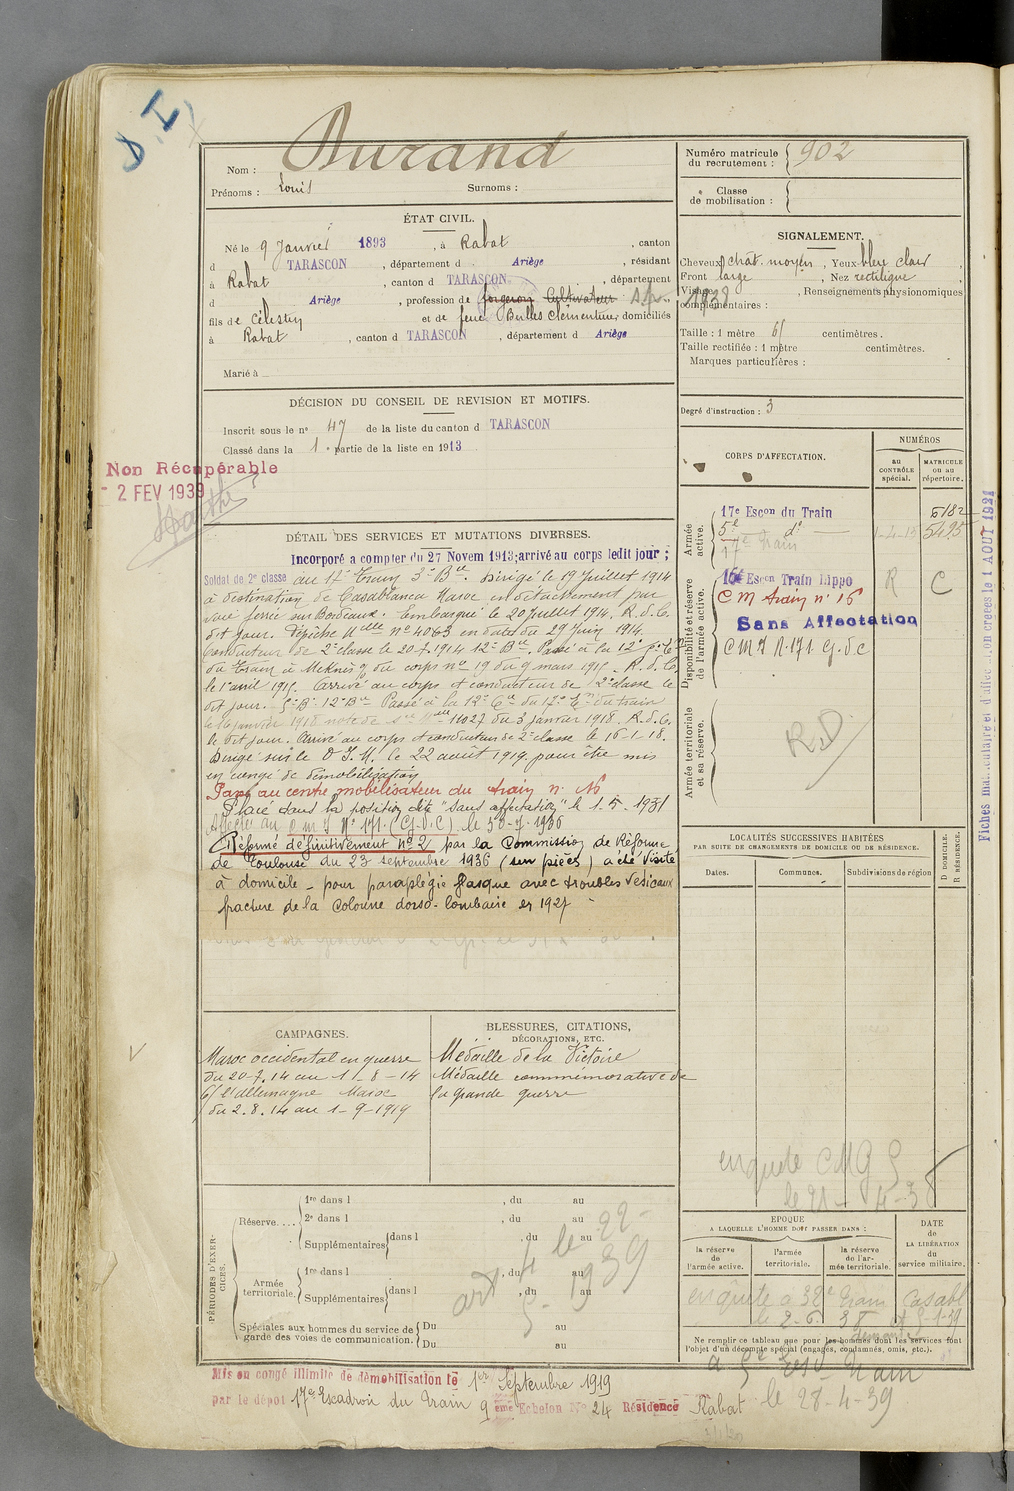 D.I
Durand
Nom :
Prénoms : Louis Surnoms :
ÉTAT CIVIL.
Né le 9 Janvier 1893, à Rabat, canton
d TARASCON, département d Ariège, résidant
à Rabat, canton d TARASCON, département
d Ariège, profession de forgeron Cultivateur
fils de Célestin et de feue Bulles Clémentine, domiciliés
à Rabat, canton d TARASCON, département d Ariège
Marié à
DÉCISION DU CONSEIL DE REVISION ET MOTIFS.
Inscrit sous le n° 47 de la liste du canton d TARASCON
Classé dans la 1e partie de la liste en 1913
Non Récupérable
- 2 FEV 1939
DÉTAIL DES SERVICES ET MUTATIONS DIVERSES.
Incorporé a compter du 27 Novem 1913; arrivé au corps ledit jour ;
Soldat de 2e classe au 17e Train 3e Bie. Dirigé le 19 Juillet 1914
à destination de Casablanca Maroc en détachement par
voie ferrée sur Bordeaux. Embarqué le 20 Juillet 1914. R.d.C.
dit jour. Dépêche Mlle n° 4063 en date du 29 Juin 1914.
Conducteur de 2e classe le 20.7.1914 12e Bie. Passé à la 12e
du Train à Meknès du corps n° 19 du 9 mars 1915. R.d.C.
le 1er avril 1915. Arrivé au corps et conducteur de 2e classe le
dit jour. 12e Bie Passé à la 12e Cie du 17e du train
le 16 janvier 1918 note de Mlle 11027 du 3 janvier 1918. R.d.C.
le dit jour. Arrivé au corps et conducteur de 2e classe le 16-1-18.
Dirigé sur le D.I.M. le 22 août 1919 pour être mis
en congé de démobilisation
Passé au centre mobilisateur du train n° 16
Placé dans la position dite "sans affectation" le 1.5.1931
Affecté au C M I N° 171 (G.V.C) le 30-7-1936
Réformé définitivement n° 2 par la Commission de Réforme
de Toulouse du 23 septembre 1936 (sur pièces) a été visité
à domicile - pour paraplégie flasque avec troubles vésicaux
fracture de la colonne dorso-lombaire en 1927
CAMPAGNES.
Maroc occidental en guerre
du 20-7.14 au 1-8-14
C/ l'allemagne Maroc
du 2.8.14 au 1-9-1919
BLESSURES, CITATIONS,
DÉCORATIONS, ETC.
Médaille de la Victoire
Médaille commémorative de
la grande guerre
PÉRIODES D'EXERCICES.
Réserve....
1re dans l , du au
2e dans l , du au
Supplémentaires dans l , du au
Armée territoriale.
1re dans l , du au
Supplémentaires dans l , du au
Spéciales aux hommes du service de garde des voies de communication.
Du au
Du au
art 4 le 22-
5-1939
Mis en congé illimité de démobilisation le 1er Septembre 1919
par le dépôt 17e Escadron du Train 9ème Echelon N° 24 Résidence Rabat
Numéro matricule du recrutement : 902
Classe de mobilisation :
SIGNALEMENT.
Cheveux chat. moyen, Yeux bleu clair,
Front large, Nez rectiligne,
Visage , Renseignements physionomiques
complémentaires :
Taille : 1 mètre 61 centimètres.
Taille rectifiée : 1 mètre centimètres.
Marques particulières :
Degré d'instruction : 3
CORPS D'AFFECTATION.
NUMÉROS
AU CONTRÔLE spécial.
MATRICULE OU AU répertoire.
Armée active.
17e Escon du Train 5182
5e do 1-4-15 5495
17e Train
Disponibilité et réserve de l'armée active.
16e Escon Train Hippo R C
C M train n° 16
Sans Affectation
C M I n.171 G.V.C
Armée territoriale et sa réserve.
RD
LOCALITÉS SUCCESSIVES HABITÉES
PAR SUITE DE CHANGEMENTS DE DOMICILE OU DE RÉSIDENCE.
Dates.
Communes.
Subdivisions de région
D DOMICILE.
R RÉSIDENCE.
enquete CMG
le 21- 4-38
EPOQUE
A LAQUELLE L'HOMME DOIT PASSER DANS :
la réserve de l'armée active.
l'armée territoriale.
la réserve de l'armée territoriale.
DATE
DE
LA LIBÉRATION
du
service militaire.
enquête a 32e Train Casabl
le 2-6-38
Ne remplir ce tableau que pour les hommes dont les services font
l'objet d'un décompte spécial (engagés, condamnés, omis, etc.).
Train
le 28-4-39
Fiches matriculaire et d'affectation créées le 1 AOUT 1921